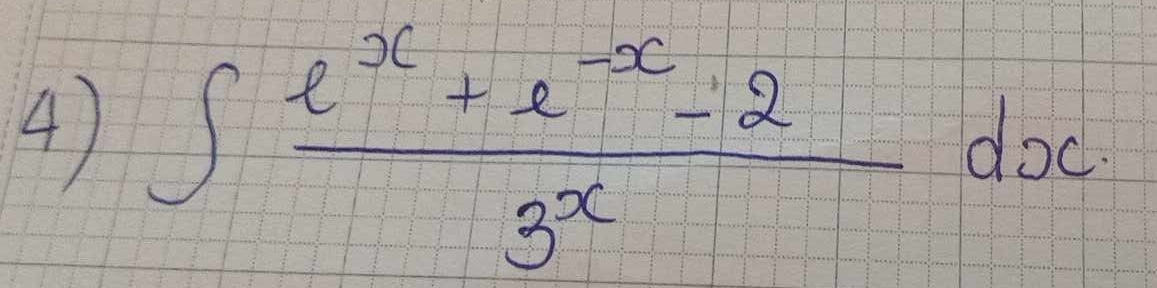 4) ∫ (e^x + e^{-x} - 2) / 3^x dx.